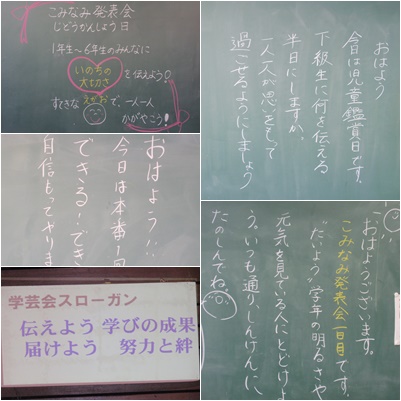 こみなみ発表会
じどうかんしょう日
1年生～6年生のみんなに
いのちの
大切さ
を伝えよう!
すてきな えがお で、一人一人
かがやこう!
おはよう
今日は児童鑑賞日です。
下級生に何を伝える
半日にしますか。
一人一人が思いをもって
過ごせるようにしましょう
おはよう!!
今日は本番1回
できる!でき
自信もってやりま
おはようございます。
こみなみ発表会一日目です。
"だいよう"学年の明るさや
元気を見ている人にとどけよ
う。いつも通り、しんけんに、
たのしんでね。
学芸会スローガン
伝えよう 学びの成果
届けよう 努力と絆